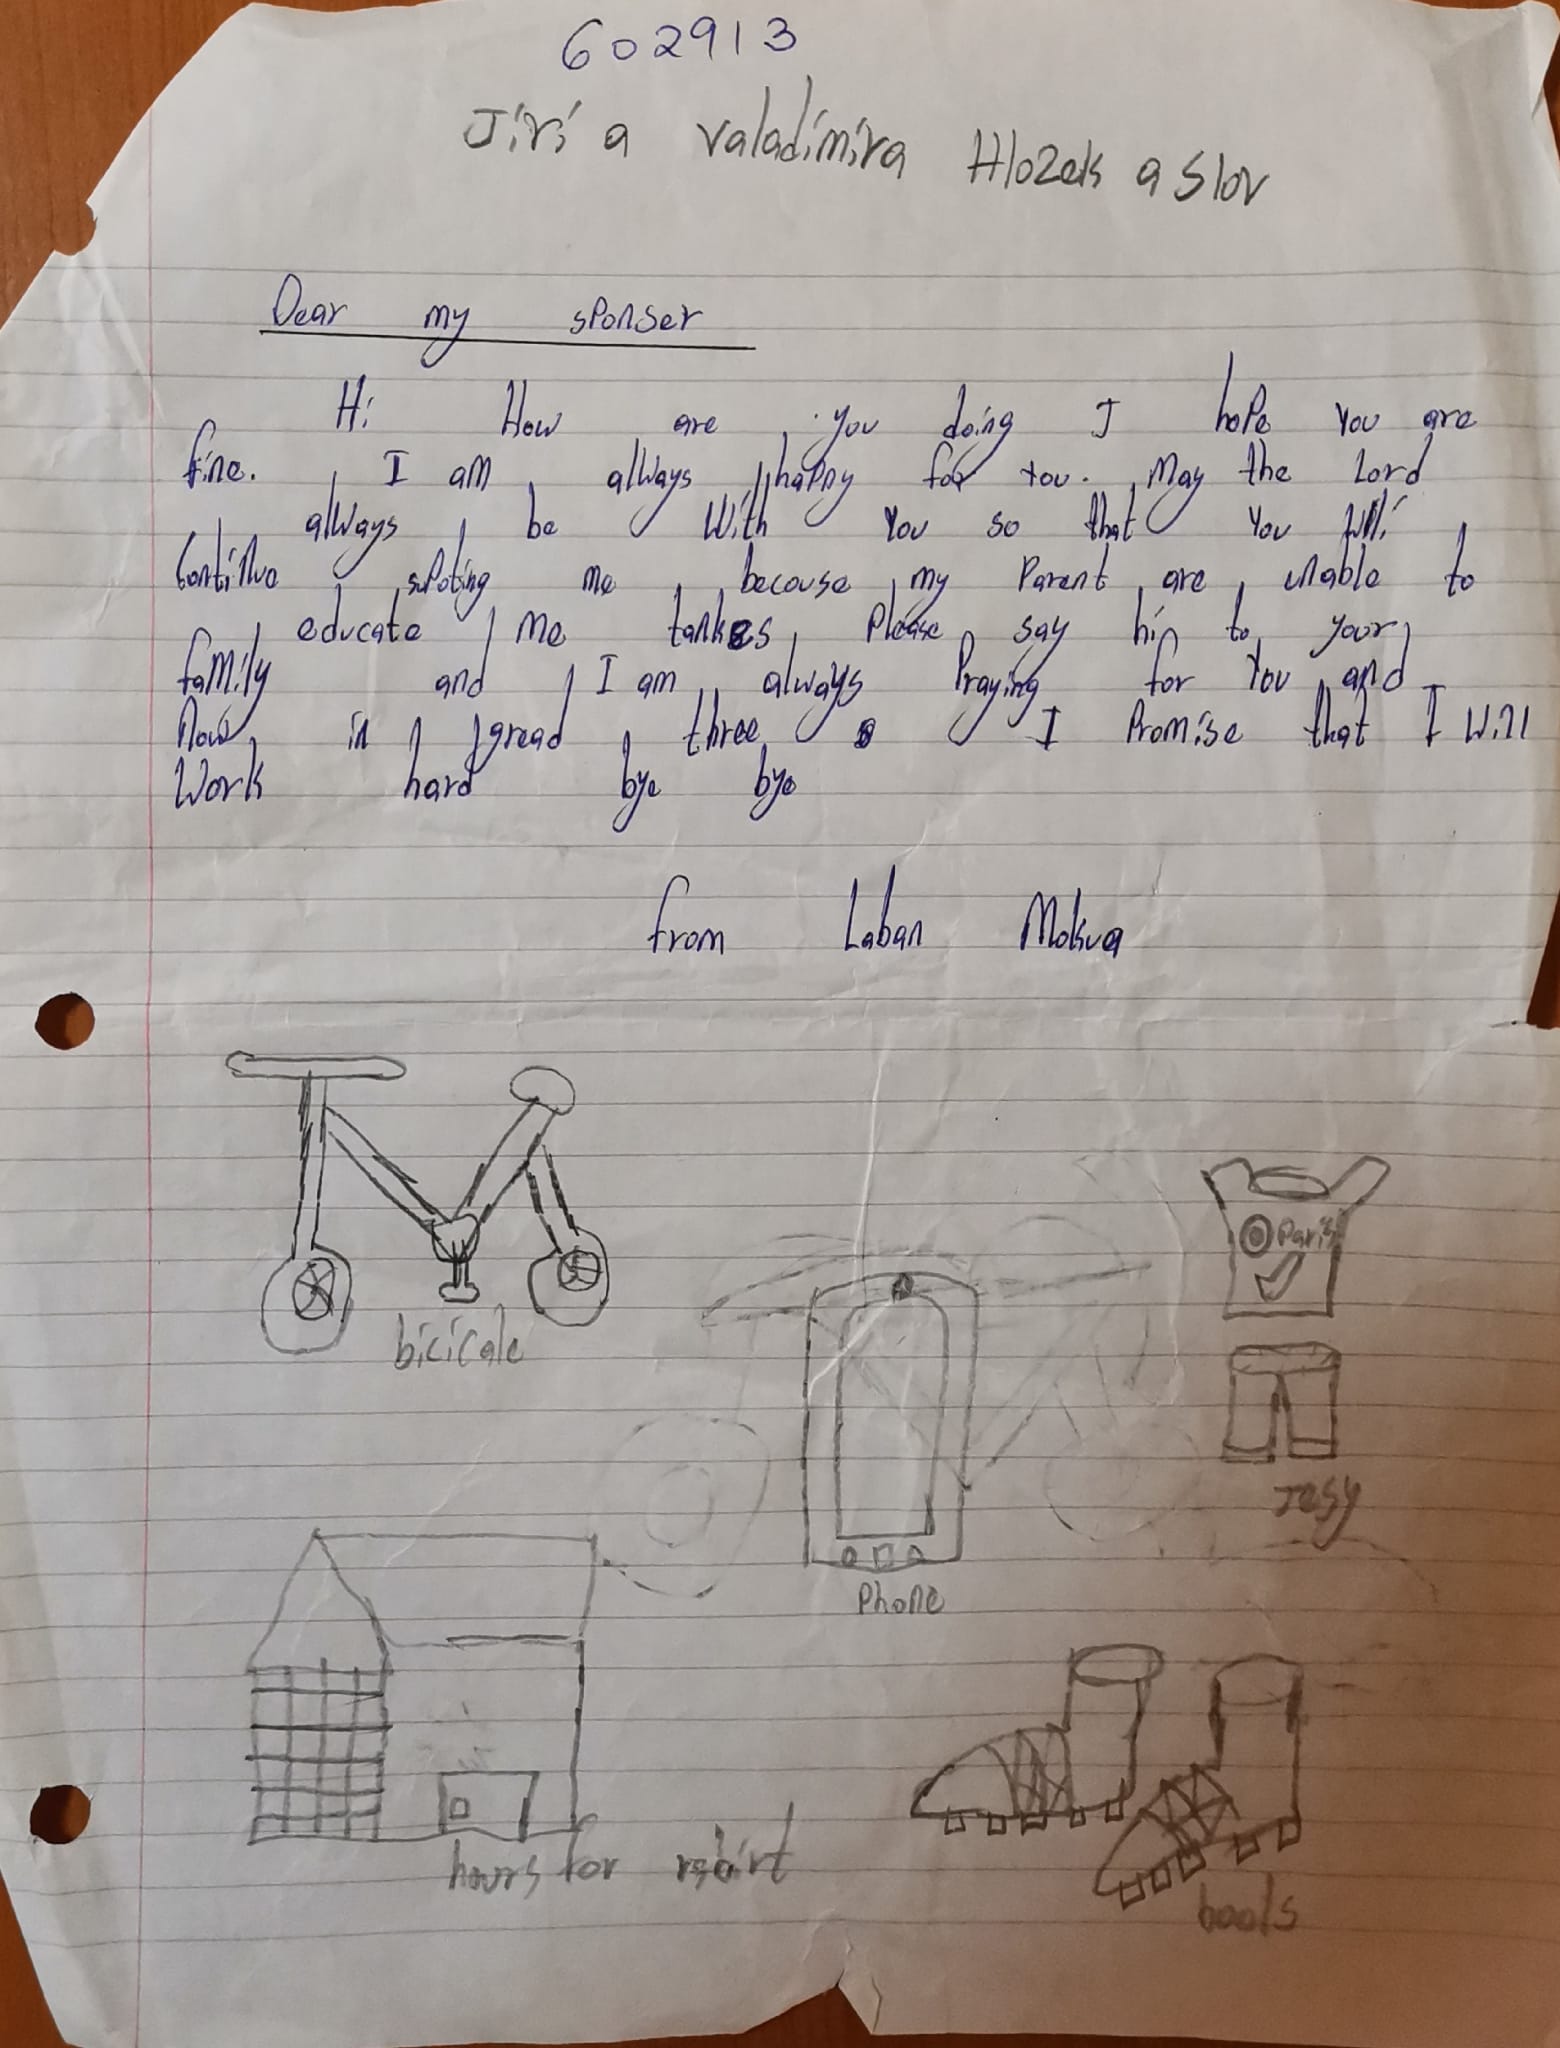 602913
Jírí a Valadímíra Hlozek a Slov
Dear my sponser
Hi How are you doing I hope you are
fine. I am always happy for you. May the Lord
always be with you so that you will
Continue supoting me becouse my Parent are unable to
educate me tankes Please say hi to your
family and I am always Praying for you and
Now in gread three I Promise that I will
Work hard bye bye
from Laban Mokua
bicicale
Paris
Jesy
Phone
hours for
boots